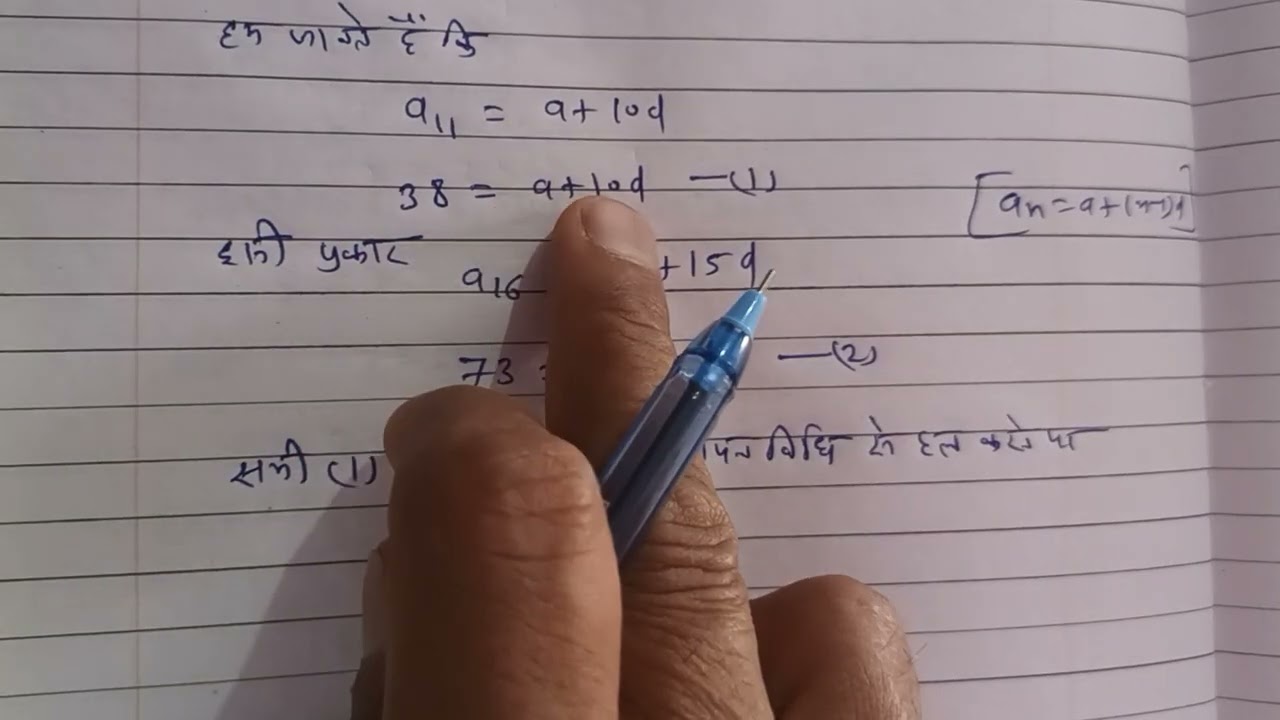 हम जानते हैं कि
a11 = a+10d
38 = a+10d —(1)
[an = a+(n-1)d]
इसी प्रकार
a16 +15d
73 = —(2)
समी (1) विधि से हल करने पर